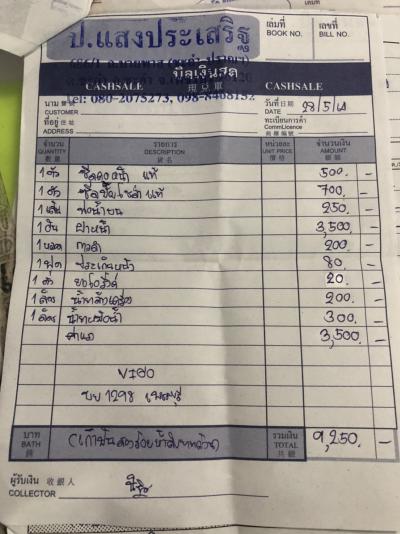 ป.แสงประเสริฐ
เล่มที่ BOOK NO.
เลขที่ BILL NO.
บิลเงินสด
CASHSALE 現兌單 CASHSALE
Tel: 080-2075273, 098-8408152
นาม CUSTOMER
วันที่ 日期 DATE 28/5/61
ที่อยู่ 住址 ADDRESS
ทะเบียนการค้า CommLicence
จำนวน QUANTITY 數量 รายการ DESCRIPTION 貨名 หน่วยละ UNIT PRICE 價格 จำนวนเงิน AMOUNT 銀額
1 ตัว แท้ 500 -
1 ตัว แท้ 700 -
1 เส้น ท่อน้ำบน 250 -
1 อัน ฝาหน้า 3,500 -
1 หลอด กาวดำ 200 -
1 ชุด ประเก็นหน้า 80 -
1 ตัว 20 -
1 ลิตร 200 -
1 ลิตร น้ำยาหม้อน้ำ 300 -
ค่าแรง 3,500 -
VIGO
1298 เพชรบุรี
บาท BATH 銖 (เก้าพันสองร้อยห้าสิบบาทถ้วน) รวมเงิน TOTAL 共銀 9,250 -
ผู้รับเงิน 收銀人 COLLECTOR